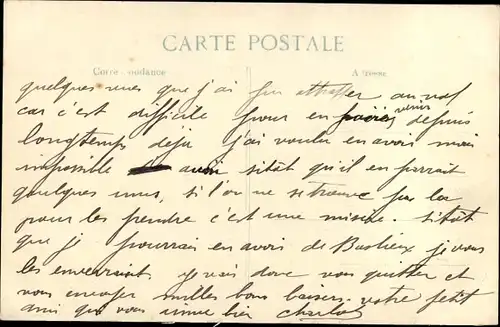 CARTE POSTALE
Correspondance
Adresse
quelques unes que j'ai pu attraper au vol
car c'est difficile pour en venir depuis
longtemps déja j'ai voulu en avoir mais
impossible avoir sitôt qu'il en parrait
quelques unes, si l'on ne se trouve pas la
pour les prendre c'est une misère. sitôt
que je pourrai en avoir de Baslieux je vous
les enverrait. je vais donc vous quitter et
vous envoyer milles bons baisers. votre petit
ami qui vous aime bien Charlot